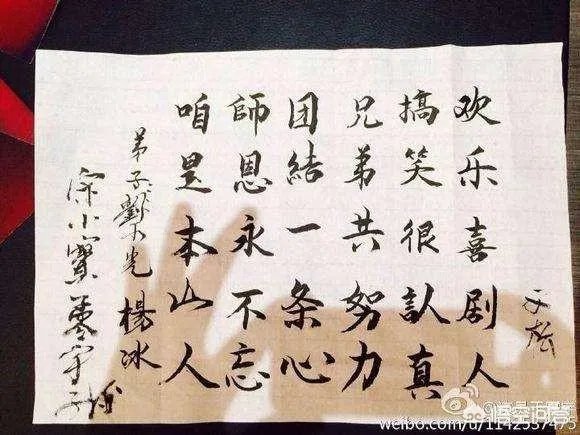 欢乐喜剧人
搞笑很認真
兄弟共努力
团結一条心
師恩永不忘
咱是本山人
弟子劉小光 楊冰
宋小寶
悟空问答
weibo.com/u/1142537473